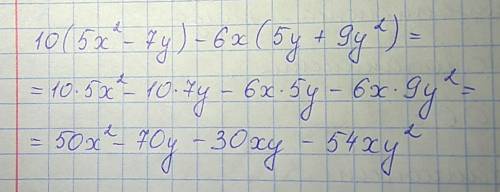 10(5x² - 7y) - 6x(5y + 9y²) =
= 10·5x² - 10·7y - 6x·5y - 6x·9y² =
= 50x² - 70y - 30xy - 54xy²